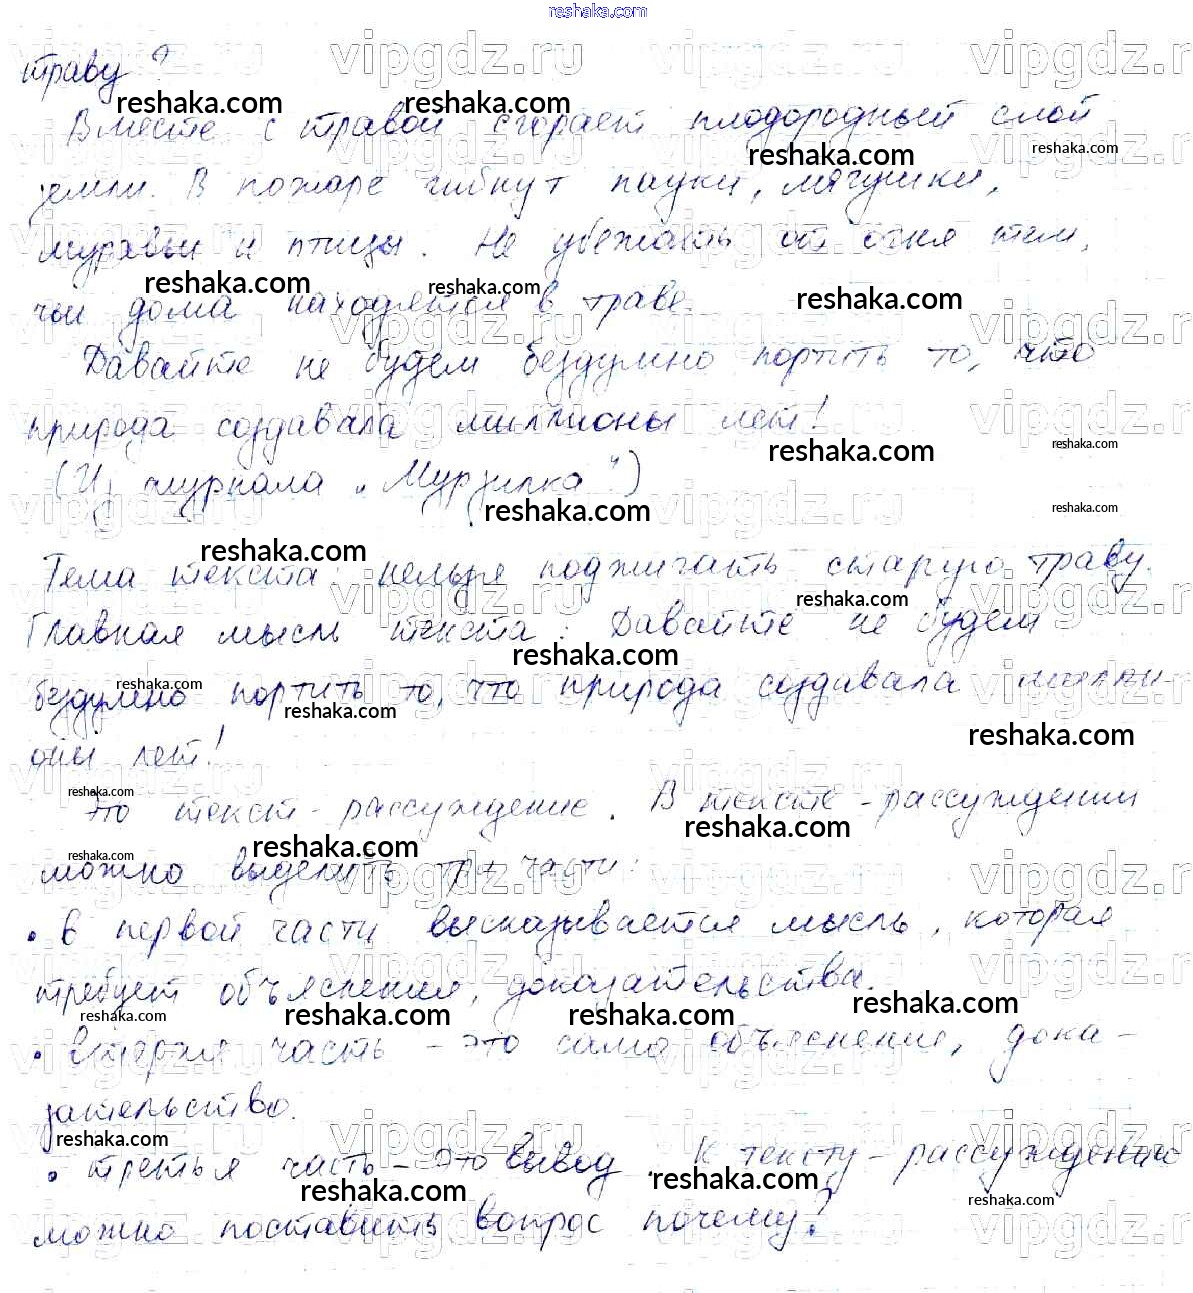 reshaka.com
траву?
Вместе с травой сгорает плодородный слой
земли. В пожаре гибнут пауки, лягушки,
муравьи и птицы. Не убежать от огня тем,
чьи дома находятся в траве.
Давайте не будем бездумно портить то, что
природа создавала миллионы лет!
(Из журнала „Мурзилка")
Тема текста: нельзя поджигать старую траву.
Главная мысль текста: Давайте не будем
бездумно портить то, что природа создавала милли-
оны лет!
Это текст-рассуждение. В тексте-рассуждении
можно выделить три части:
• в первой части высказывается мысль, которая
требует объяснения, доказательства.
• вторая часть - это само объяснение, дока-
зательство.
• третья часть - это вывод. К тексту-рассуждению
можно поставить вопрос почему?